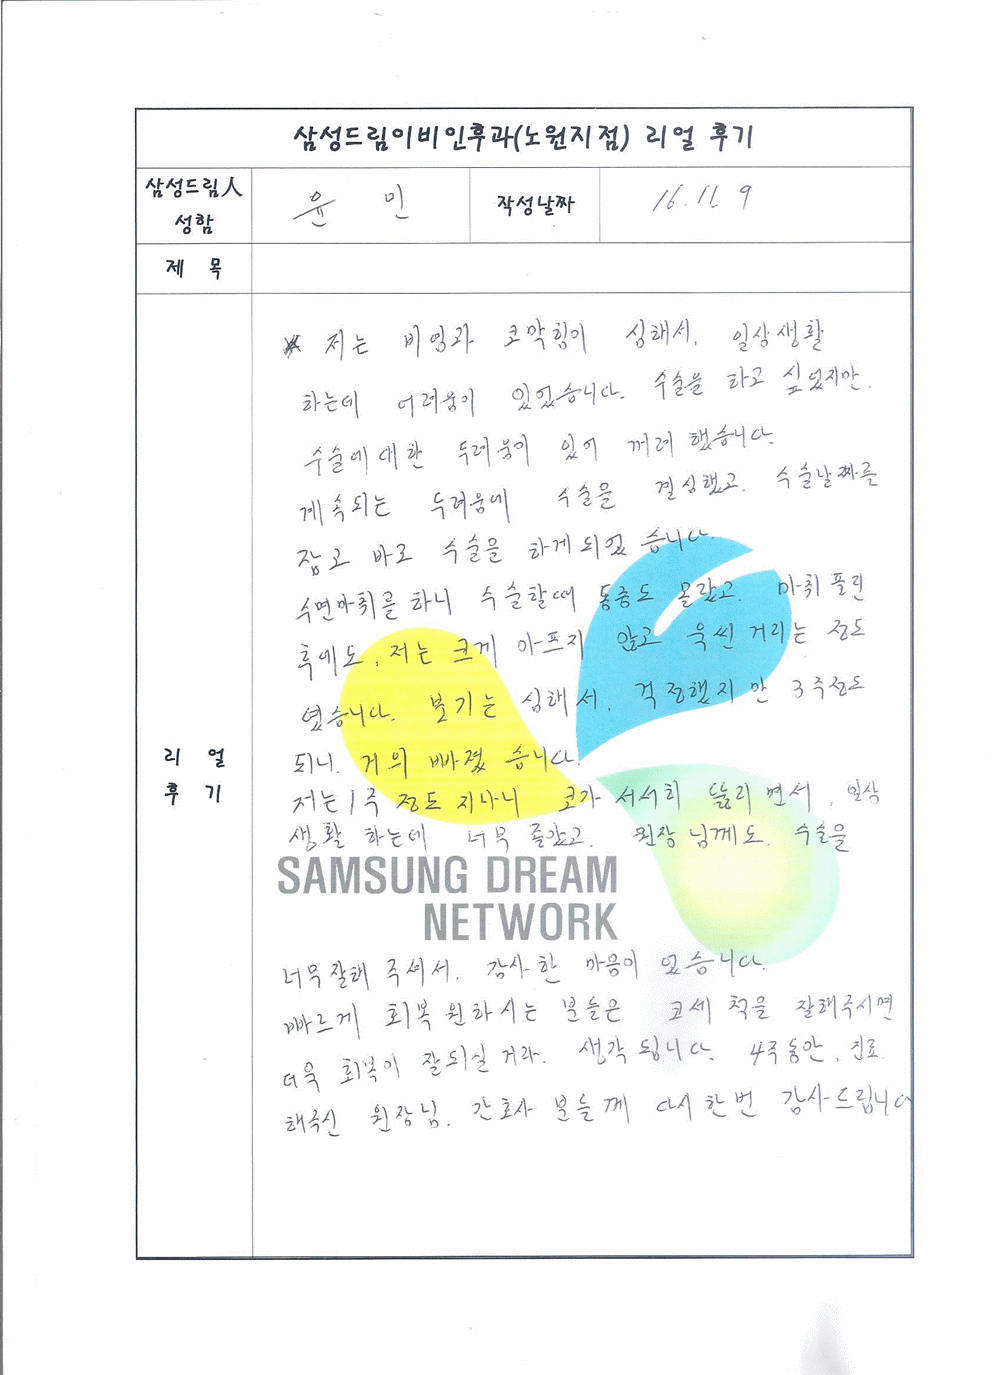 삼성드림이비인후과(노원지점) 리얼 후기
삼성드림人 성함
윤 민
작성날짜
16. 11. 9
제 목
리 얼 후 기
저는 비염과 코막힘이 심해서, 일상생활
하는데 어려움이 있었습니다. 수술을 하고 싶었지만.
수술에 대한 두려움이 있어 꺼려 했습니다.
계속되는 두려움에 수술을 결심했고. 수술날짜를
잡고 바로 수술을 하게되었습니다.
수면마취를 하니 수술할때 통증도 몰랐고. 마취 풀린
후에도, 저는 크게 아프지 않고 욱씬 거리는 정도
였습니다. 붓기는 심해서. 걱정했지만 3주정도
되니. 거의 빠졌습니다.
저는 1주 정도 지나니 코가 서서히 뚫리면서, 일상
생활 하는데 너무 좋았고. 원장님께도. 수술을
SAMSUNG DREAM
NETWORK
너무 잘해 주셔서. 감사한 마음이 있습니다.
빠르게 회복 원하시는 분들은 코세척을 잘해주시면
더욱 회복이 잘되실 거라. 생각 됩니다. 4주동안, 진료
해주신 원장님. 간호사 분들께 다시한번 감사드립니다